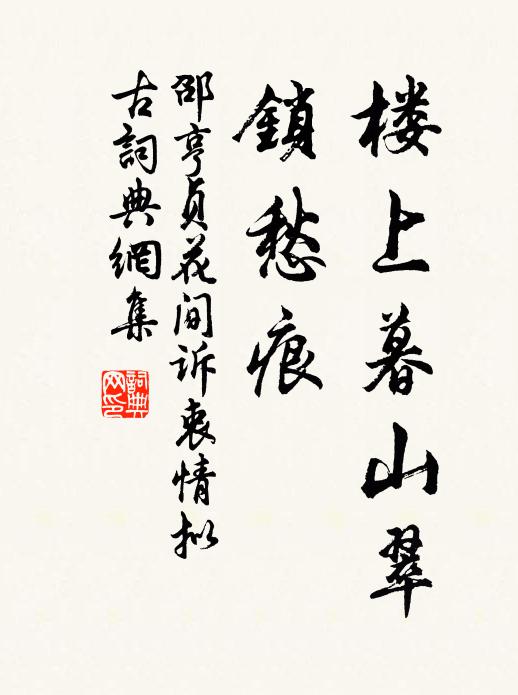 楼上暮山翠
鎖愁痕
邵亨貞花間訴衷情拟
古詞典網集
詞典网印